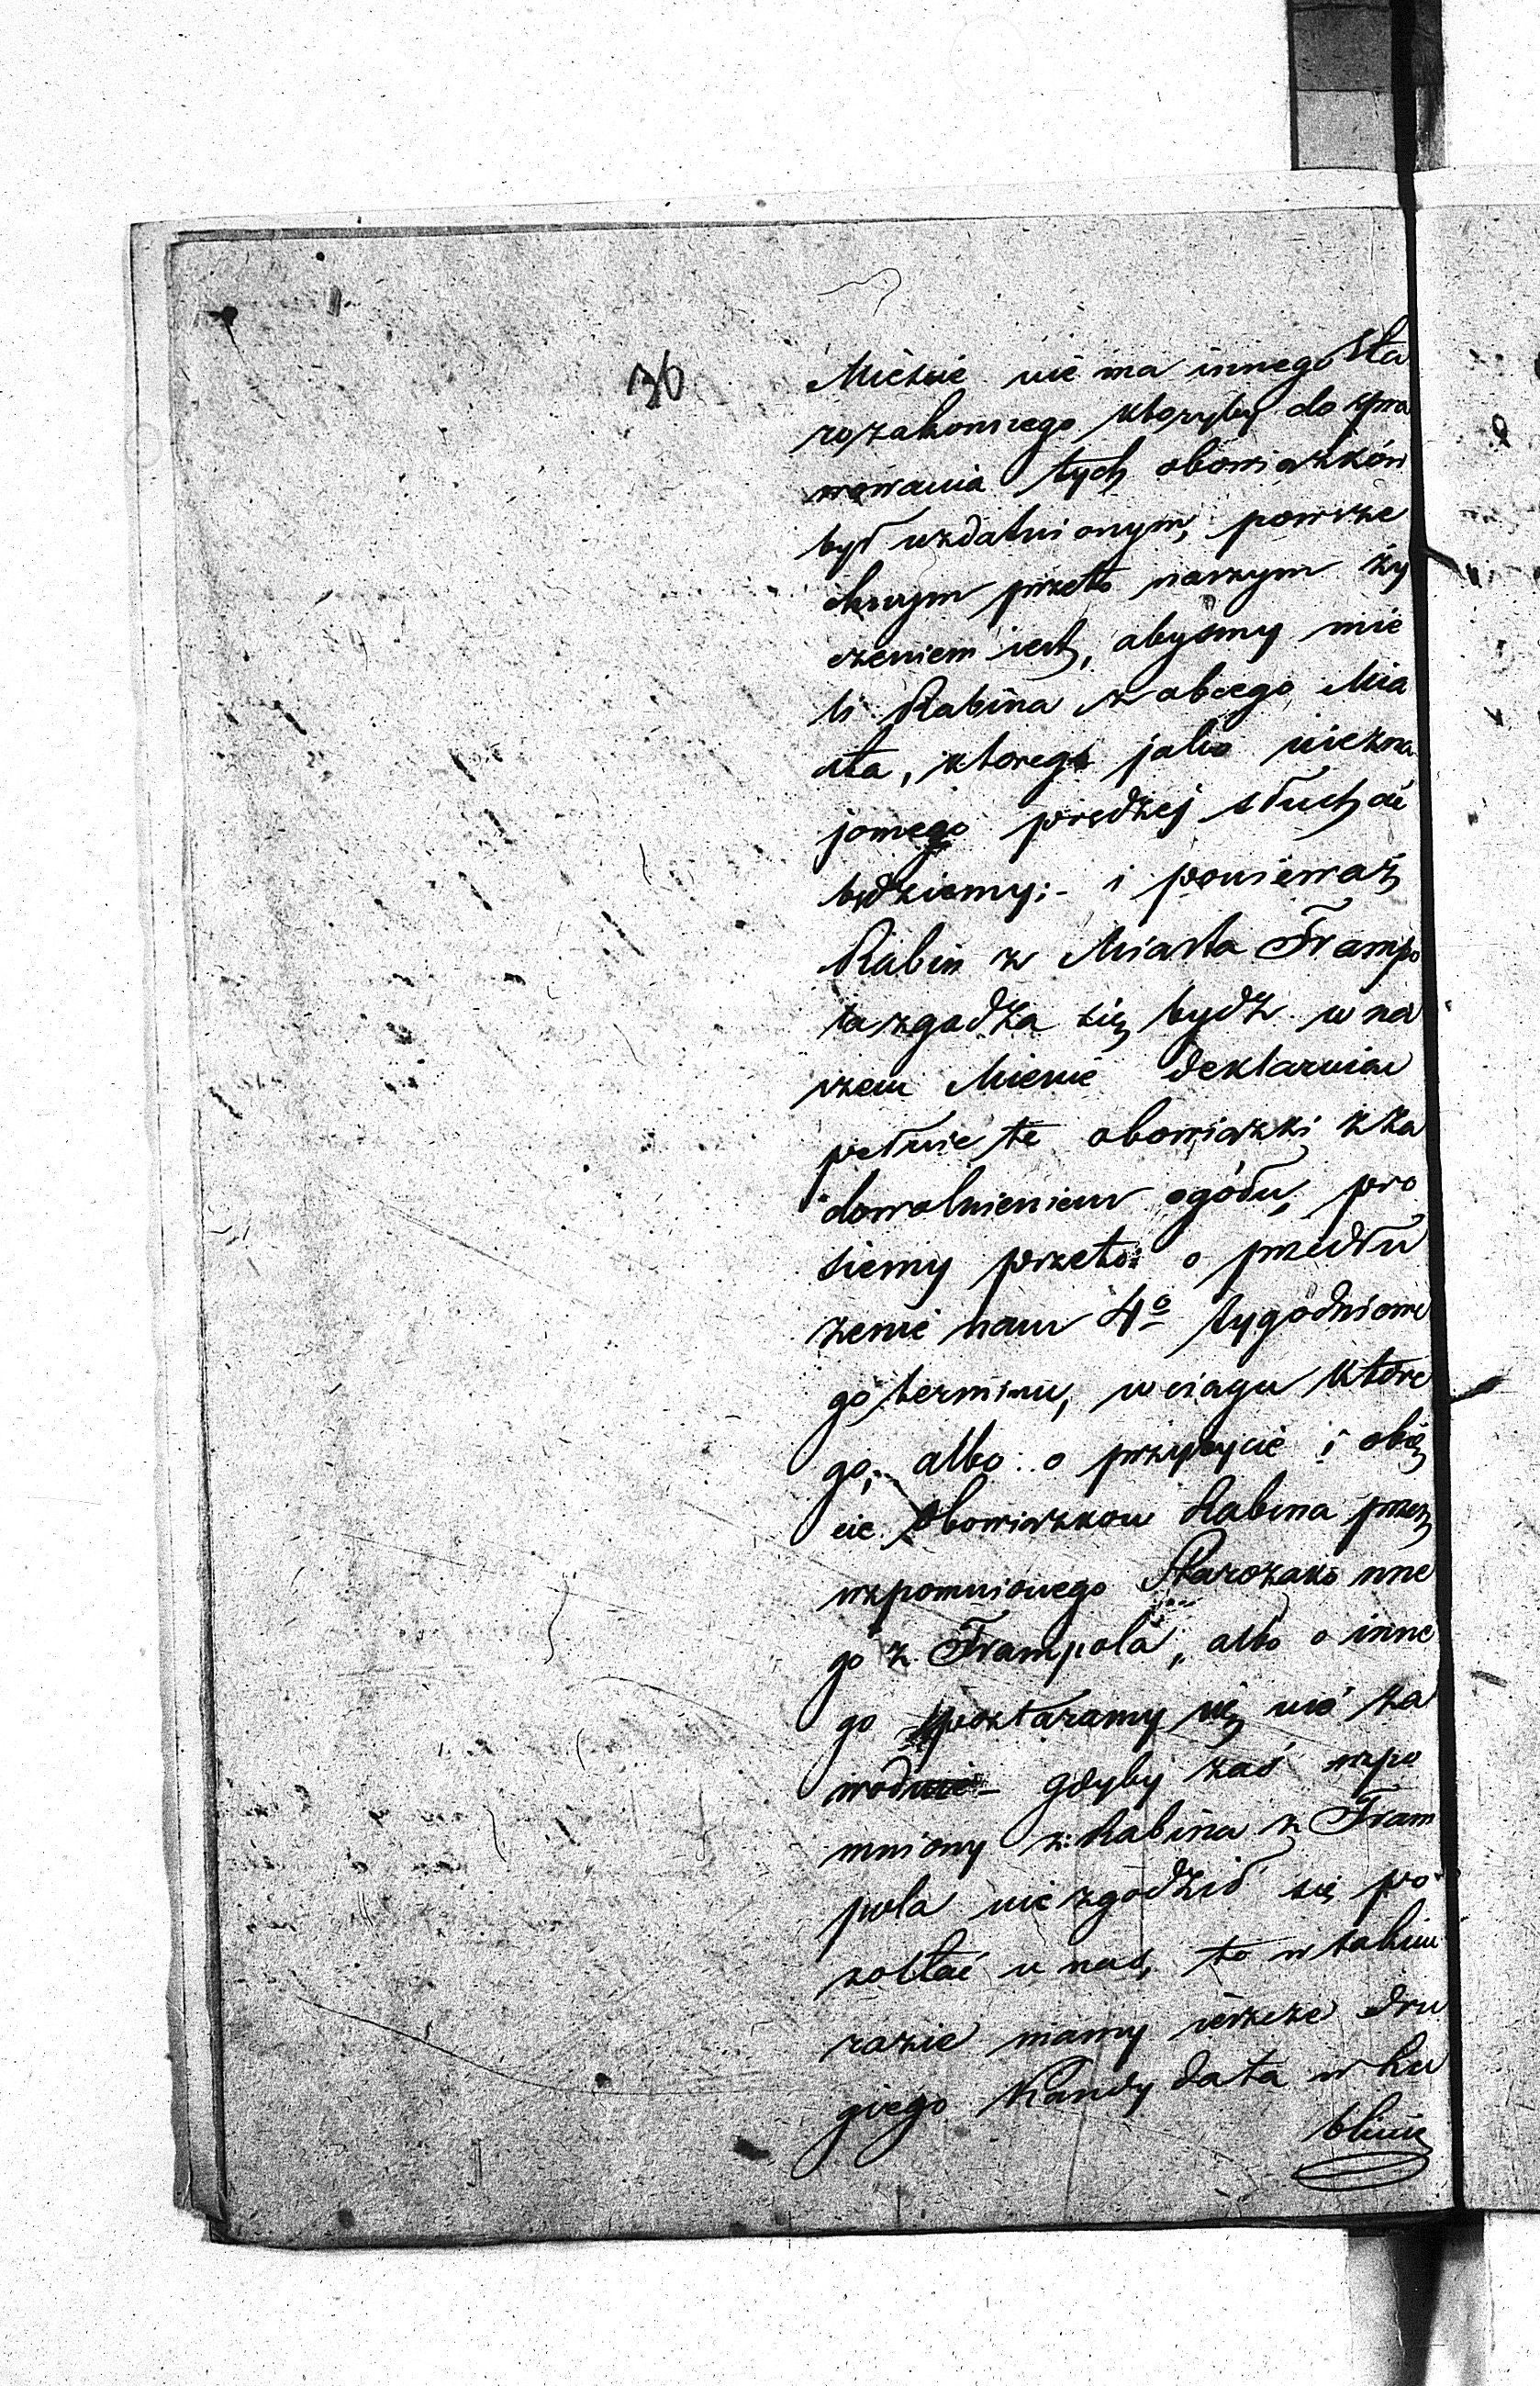 36
Mieście nie ma innego Sta
rozakonnego ktoryby do spra
wowania tych obowiązków
był uzdatnionym, powsze
chnym przeto naszym ży
czeniem iest, abysmy mie
li Rabina z obcego Mia
sta, ktorego jako niezna
jomego prędzej słuchać
będziemy;- i ponieważ
Rabin z Miasta Frampo
la zgadza się bydź w na
szem Mieście
pełnić te obowiązki z za
dowolnieniem ogółu, pro
siemy przeto o przedłu
żenie nam 4o tygodniowe
go terminu, w ciągu które
go, albo o przybycie i obię
cie Obowiązkow Rabina przez
wspomnionego Starozakonne
go z Frampola, albo o inne
go postaramy się nie za
wodnie - gdyby zaś wspo
mniony Rabina z Fram
pola nie zgodził się po
zostać u nas, to w takim
razie mamy ieszcze dru
giego Kandydata w Lu
blinie